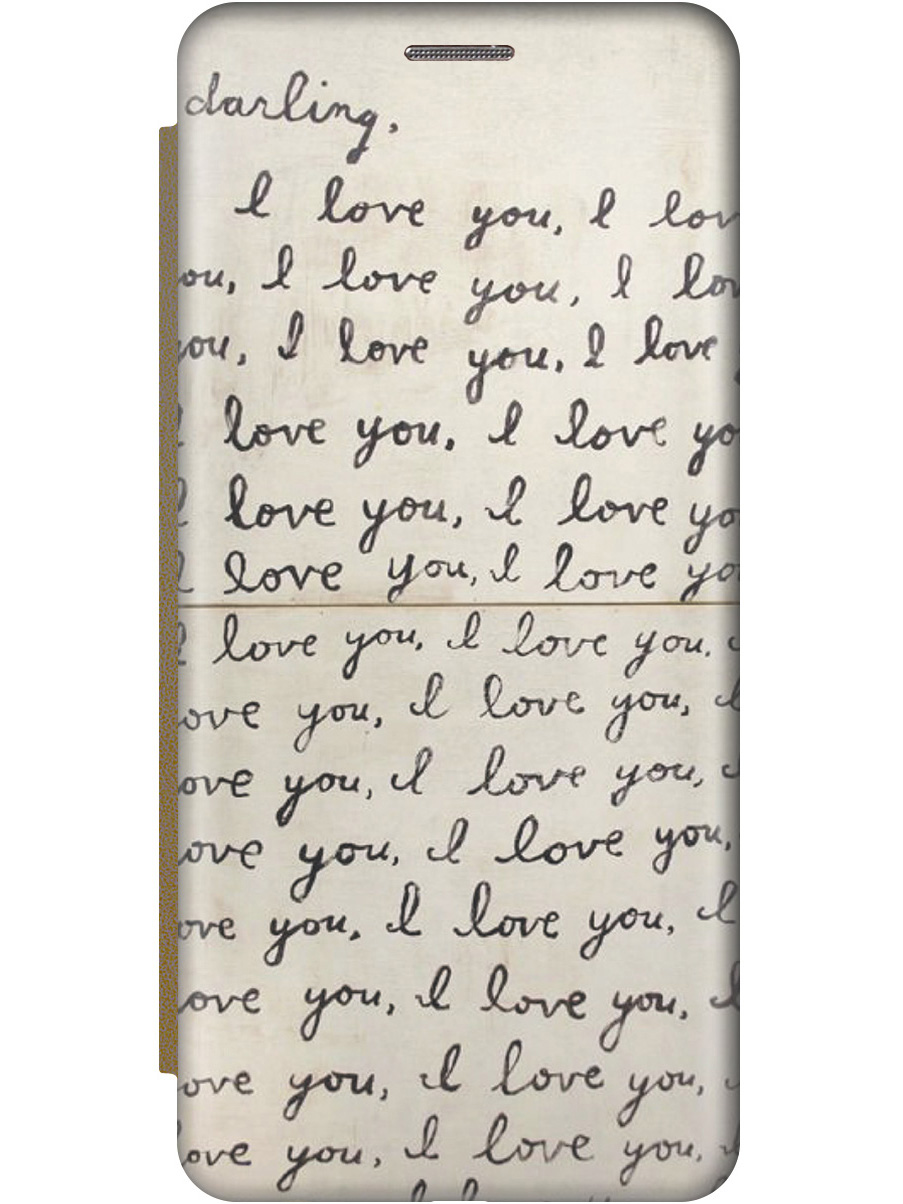 darling,
I love you, I lov
ou, I love you, I lov
you, I love you, I love
I love you, I love yo
I love you, I love yo
I love you, I love yo
I love you, I love you,
ove you, I love you, I
ove you, I love you, I
ove you, I love you,
ove you, I love you, I
ove you, I love you, I
ove you, I love you,
ove you, I love you, I